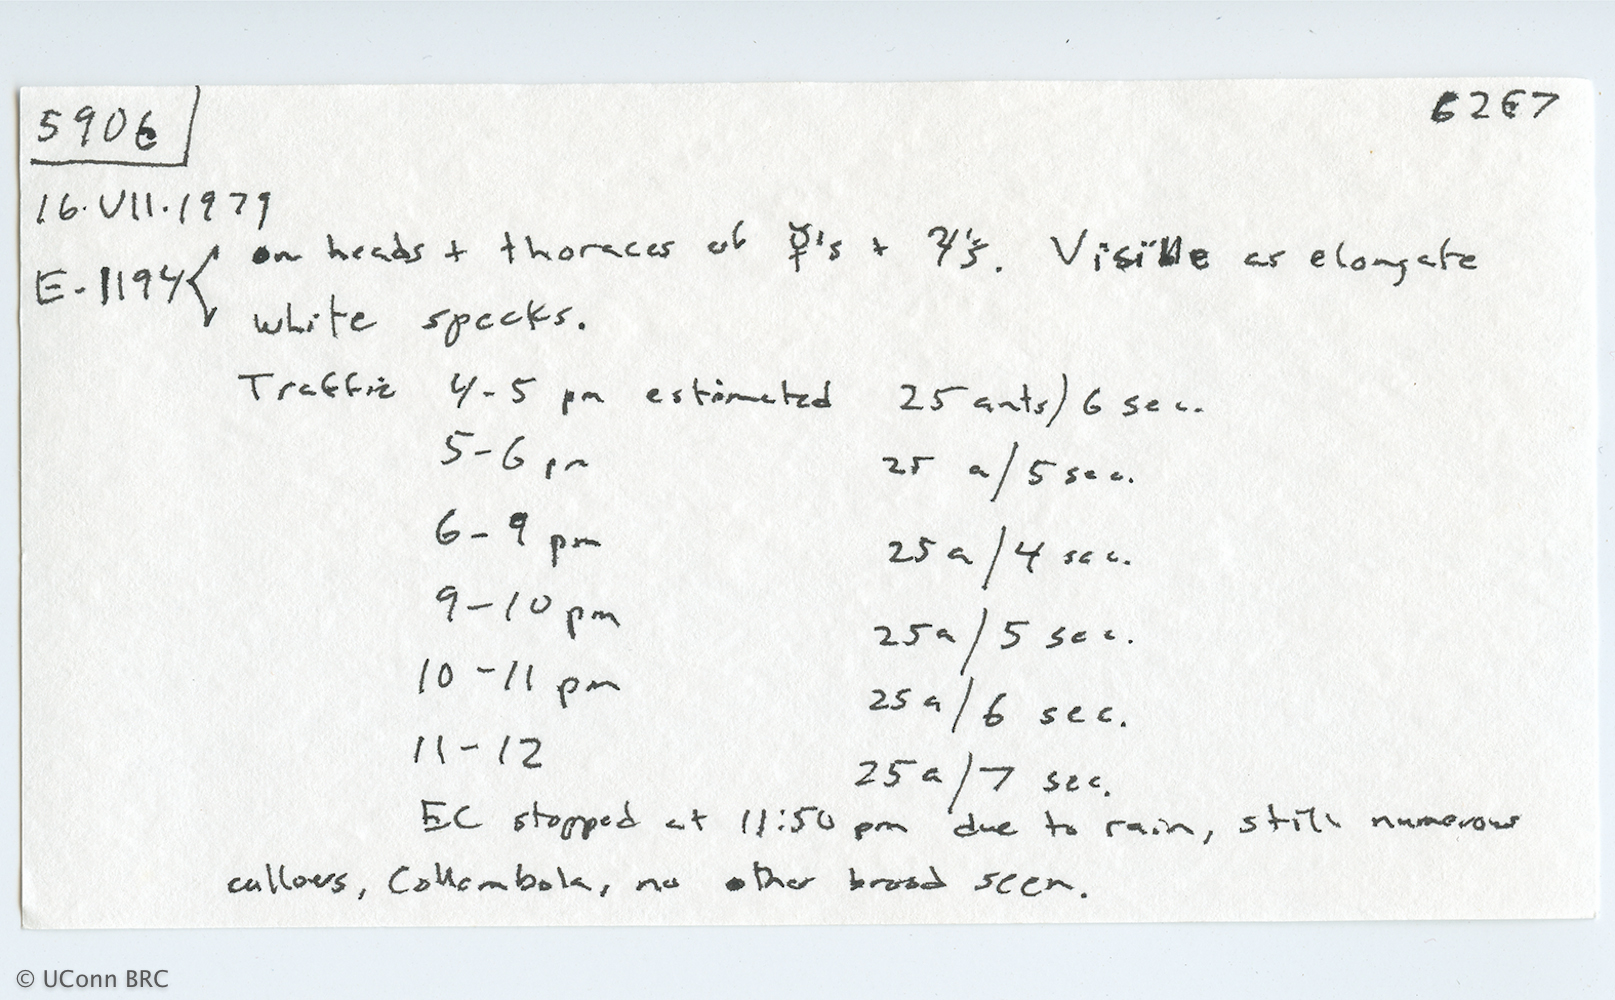 5906
6267
16.VII.1979
E-1194 on heads + thoraces of ☿'s + ♃'s. Visible as elongate
white specks.
Traffic 4-5 pm estimated 25 ants/6 sec.
5-6 pm 25 a/5 sec.
6-9 pm 25 a/4 sec.
9-10 pm 25a/5 sec.
10-11 pm 25 a/6 sec.
11-12 25 a/7 sec.
EC stopped at 11:50 pm due to rain, still numerous
callows, Collembola, no other brood seen.
© UConn BRC